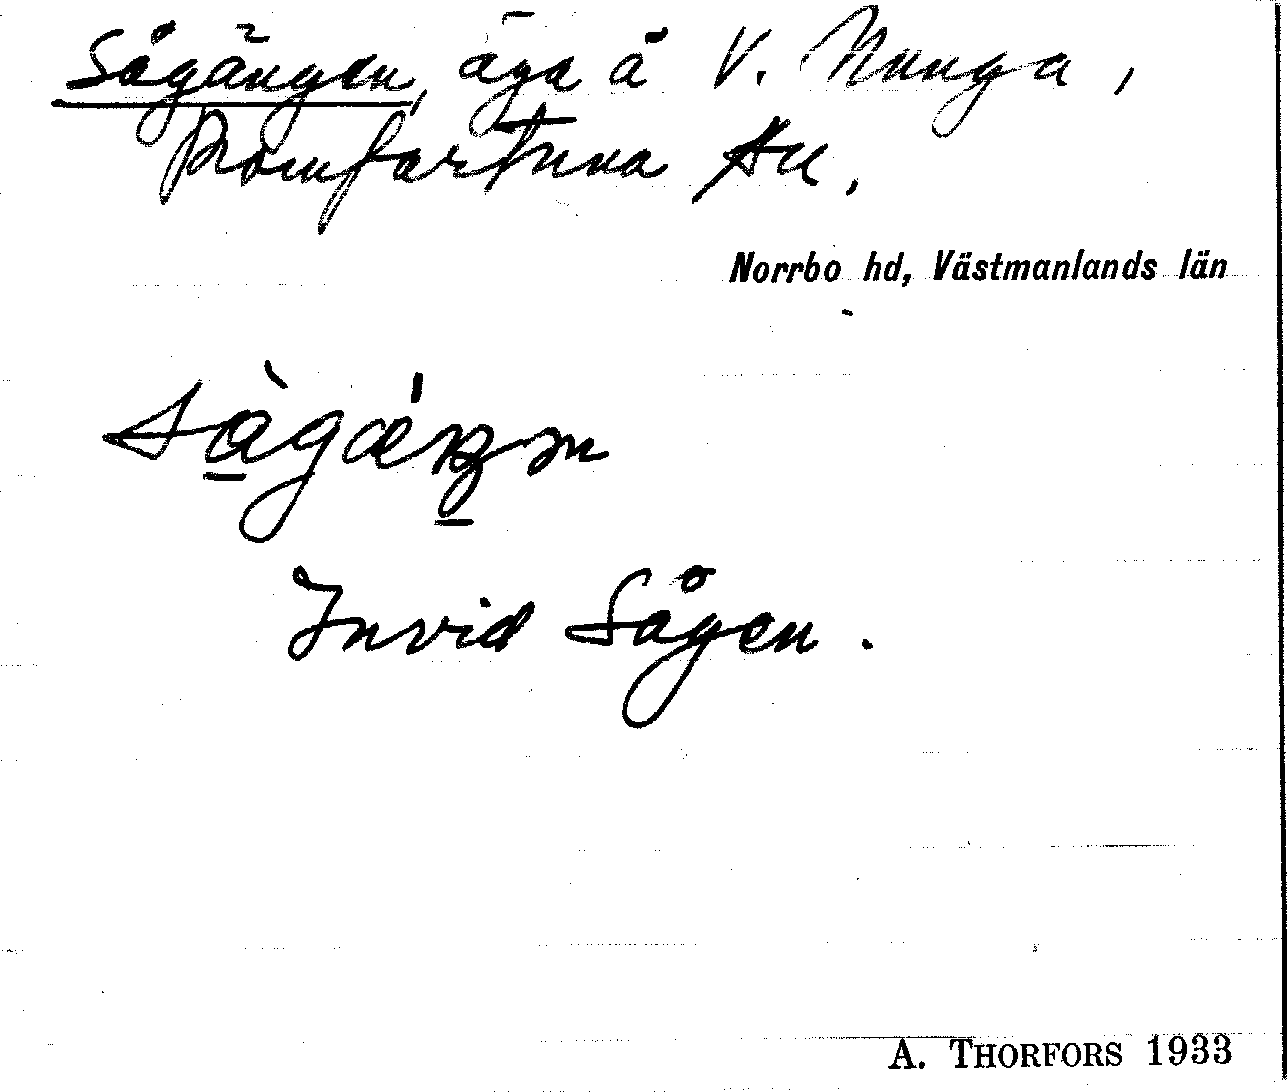 Sågängen, äga å V. Nunga,
Romfartuna sn.
Norrbo hd, Västmanlands län
Invid Sågen.
A. THORFORS 1933